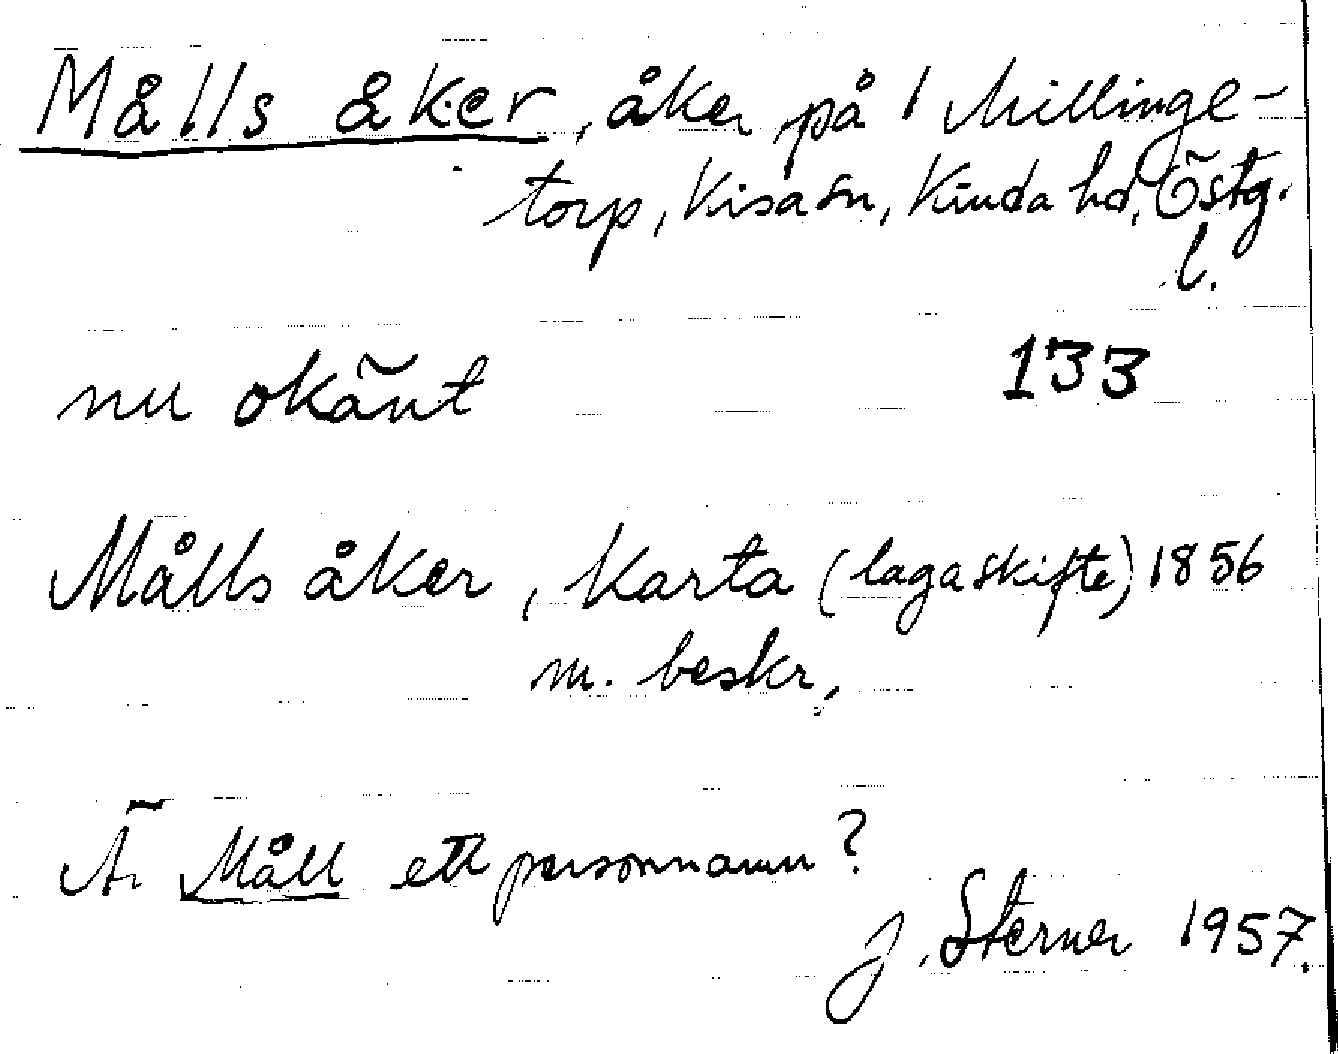 Målls åker, åker på 1 Millinge-
torp, Kisa sn, Kinda hd, Östg.
l.
nu okänt 133
Målls åker, karta (laga skifte) 1856
m. beskr.
Är Måll ett personnamn?
J. Sterner 1957.